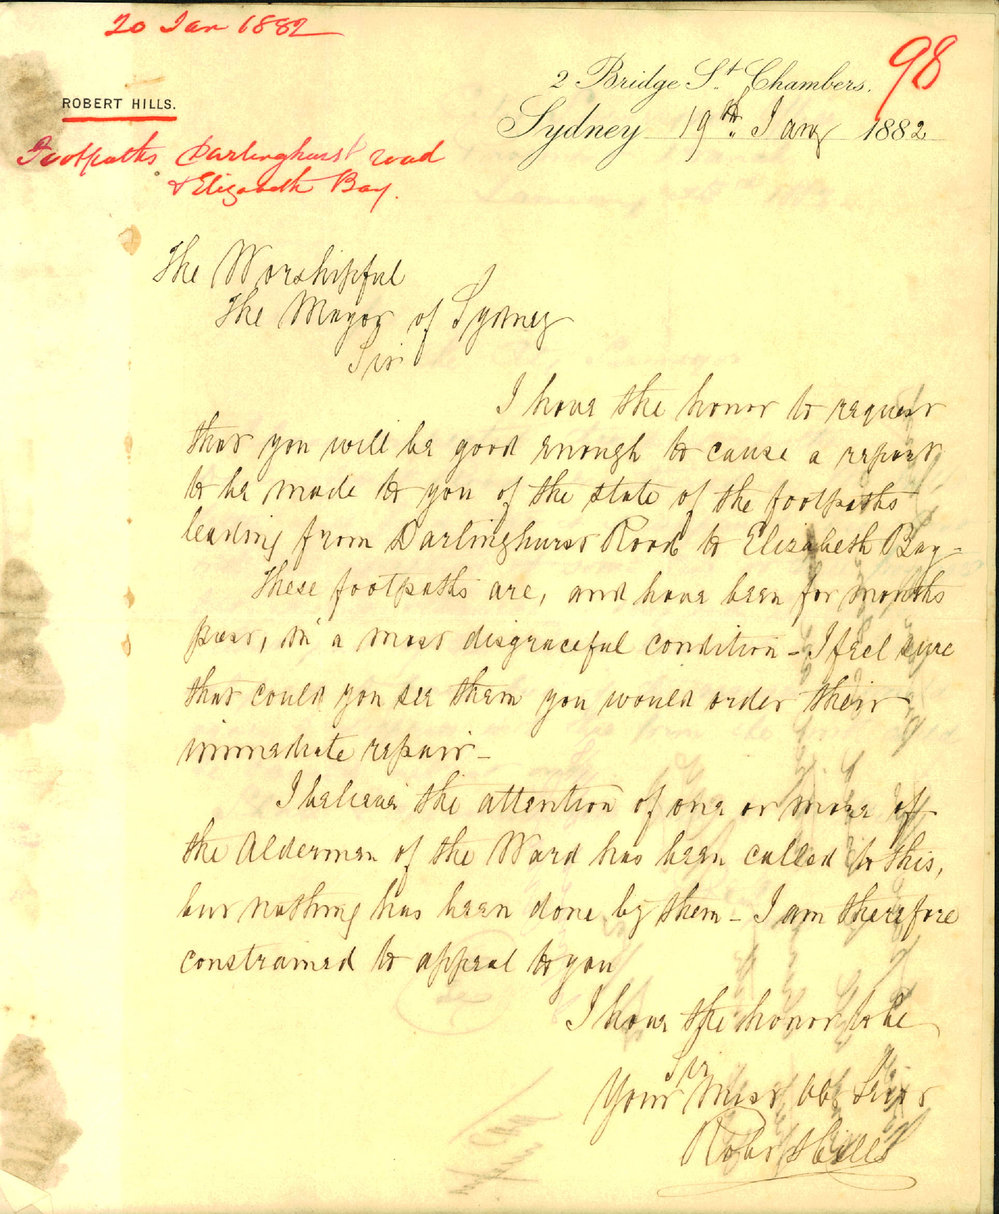 20 Jan 1882
98
2 Bridge St. Chambers.
ROBERT HILLS.
Sydney 19th Jany 1882
Footpaths Darlinghurst road
& Elizabeth Bay.
The Worshipful
The Mayor of Sydney
Sir
I have the honor to request
that you will be good enough to cause a report
to be made to you of the state of the footpaths
leading from Darlinghurst Road to Elizabeth Bay-
These footpaths are, and have been for months
past, in a most disgraceful condition - I feel sure
that could you see them you would order their
immediate repair-
I believe the attention of one or more of
the Alderman of the Ward has been called to this,
but nothing has been done by them - I am therefore
constrained to appeal to you
I have the honor to be
Sir
Your most ob Servt
Robt Hills